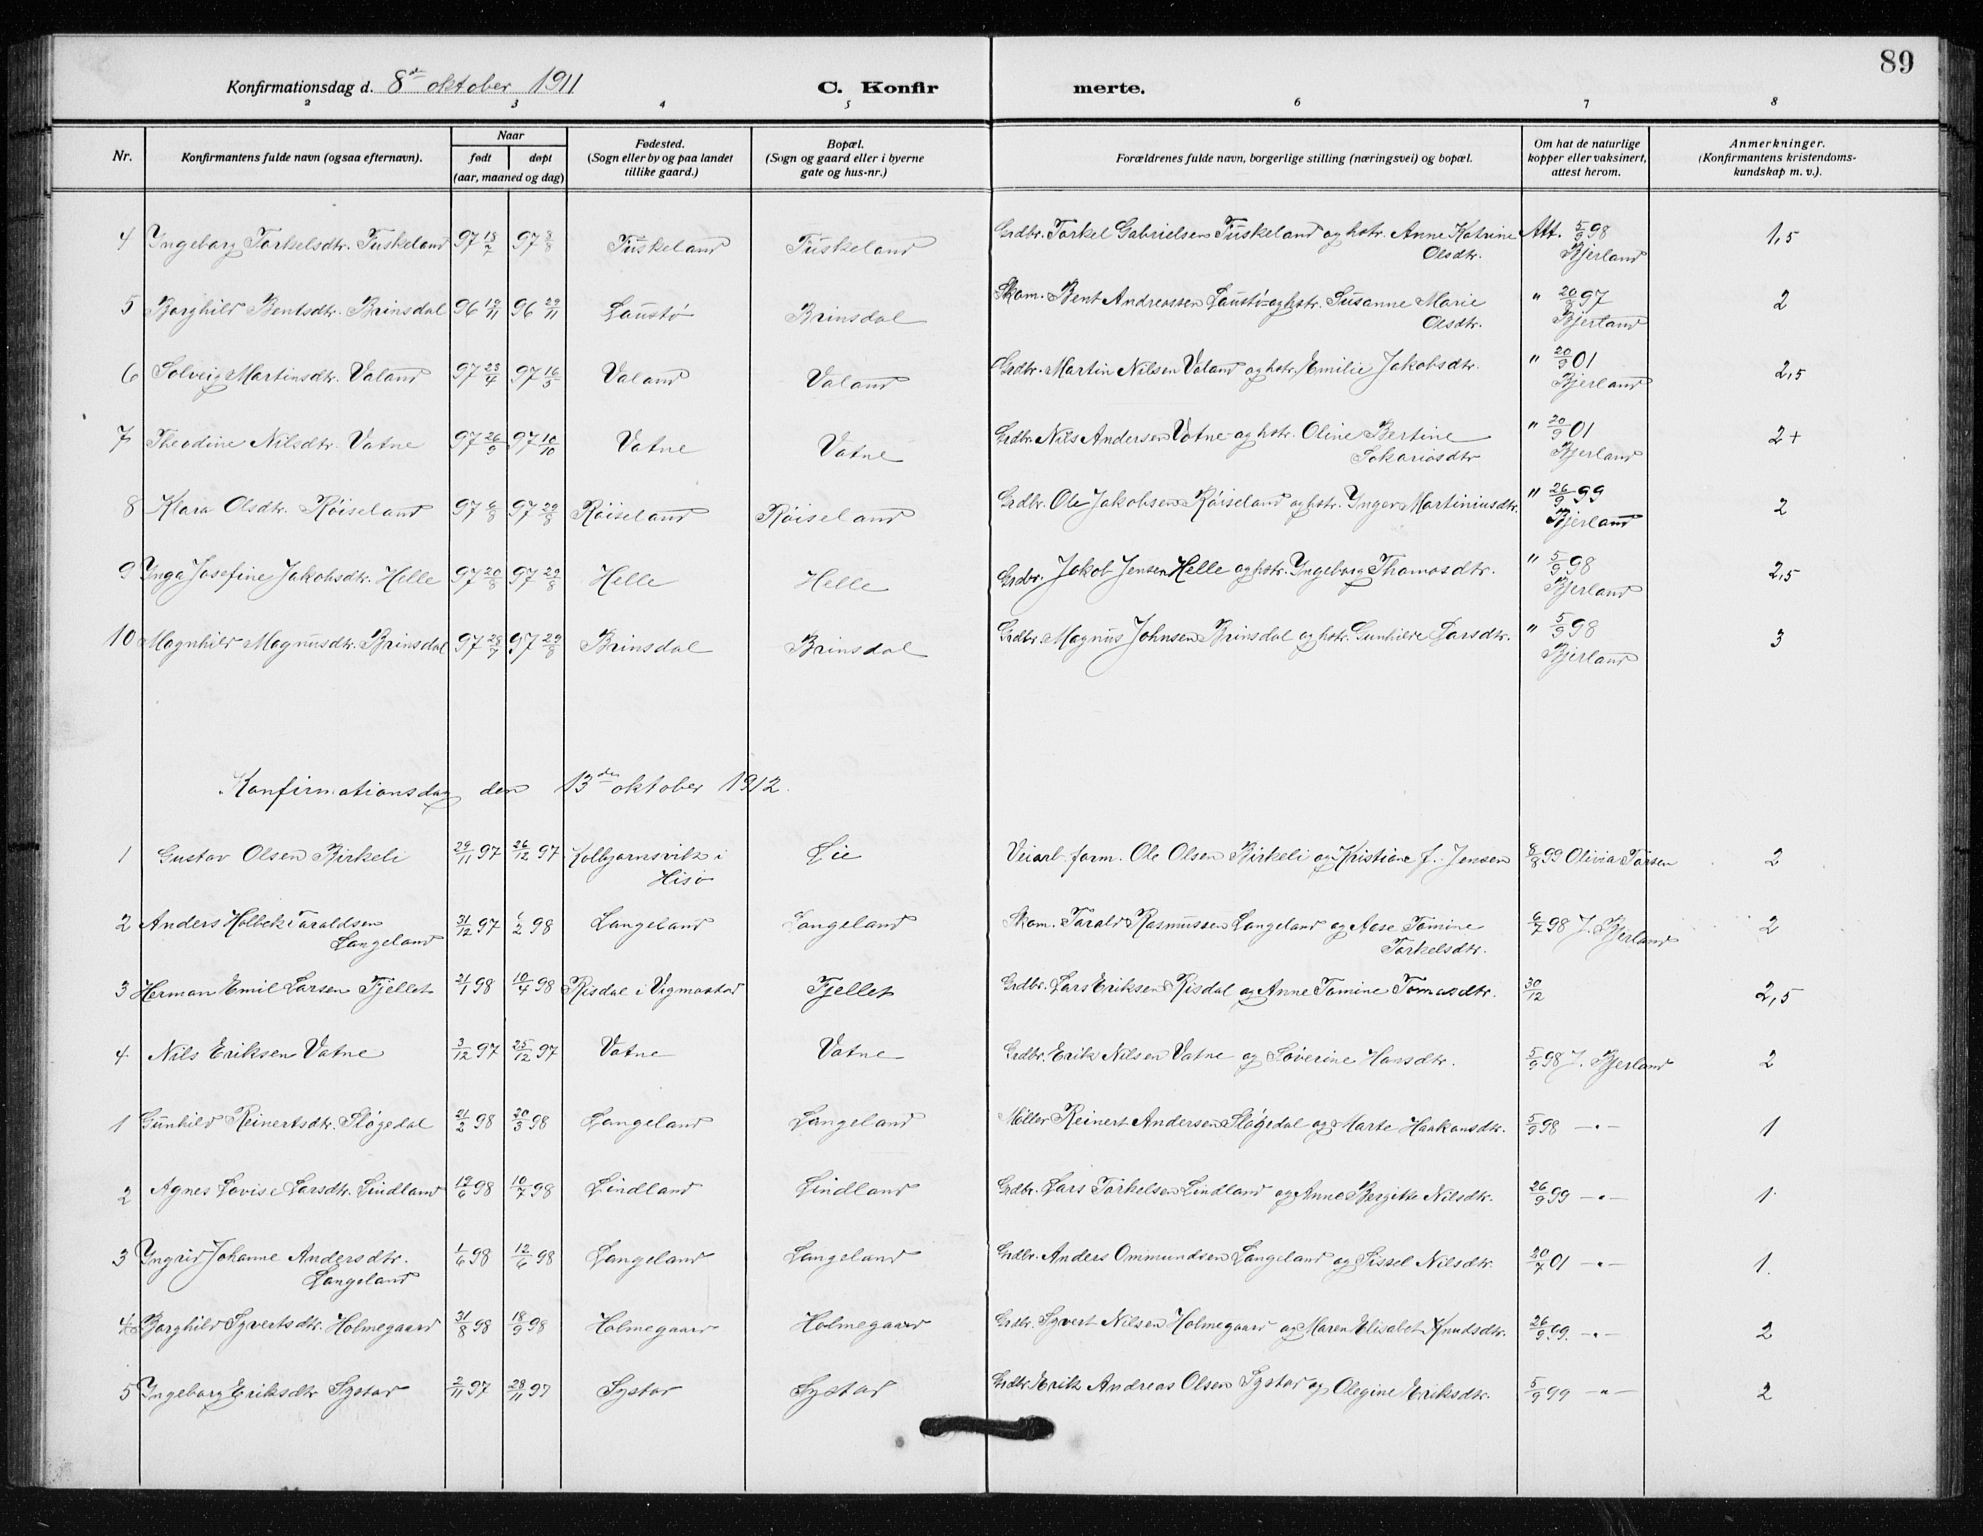 89
Konfirmationsdag d. 8de oktober 1911 C. Konfir merte.
2 3 4 5 6 7 8
Nr. Konfirmantens fulde navn (ogsaa efternavn). Naar født døpt (aar, maaned og dag) Fødested. (Sogn eller by og paa landet tillike gaard.) Bopæl. (Sogn og gaard eller i byerne gate og hus-nr.) Forældrenes fulde navn, borgerlige stilling (næringsvei) og bopæl. Om hat de naturlige kopper eller vaksinert, attest herom. Anmerkninger. (Konfirmantens kristendoms-kundskap m. v.).
4 Ingeborg Torkelsdtr. Tuskeland 97 18/7 97 8/8 Tuskeland Tuskeland Grdbr. Torkel Gabrielsen Tuskeland og hstr. Anne Katrine Att. 5/9 98 1,5
Olsdtr. Bjerland
5 Borghild Bentsdtr. Brinsdal 96 19/11 96 29/11 Laustø Brinsdal Skom. Bent Andreassen Laustø og hstr. Susanne Marie " 20/9 97 2
Olsdtr. Bjerland
6 Solveig Martinsdtr. Valand 97 23/4 97 16/5 Valand Valand Grdbr. Martin Nilsen Valand og hstr. Emilie Jakobsdtr. " 20/9 01 2,5
Bjerland
7 Theodine Nilsdtr. Vatne 97 26/9 97 10/10 Vatne Vatne Grdbr. Nils Andersen Vatne og hstr. Oline Bertine " 20/9 01 2+
Sakariasdtr Bjerland
8 Klara Olsdtr. Røiseland 97 6/8 97 29/8 Røiseland Røiseland Grdbr. Ole Jakobsen Røiseland og hstr. Inger Martiniusdtr. " 26/9 99 2
Bjerland
9 Inga Josefine Jakobsdtr. Helle 97 20/8 97 29/8 Helle Helle Grdbr. Jakob Jensen Helle og hstr. Ingeborg Thomasdtr. " 5/9 98 2,5
Bjerland
10 Magnhild Magnusdtr. Brinsdal 97 28/7 97 29/8 Brinsdal Brinsdal Grdbr. Magnus Johnsen Brinsdal og hstr. Gunhilde Larsdtr. " 5/9 98 3
Bjerland
Konfirmationsdag den 13den oktober 1912.
1 Gustav Olsen Birkeli 29/11 97 26/12 97 Kolbjørnsvik i Lie Veiarb. form. Ole Olsen Birkeli og Kristiane f. Jensen 8/8 99 Olivia Tørsen 2
Hisø
2 Anders Holbek Taraldsen 31/12 97 /2 98 Langeland Langeland Skom. Tarald Rasmussen Langeland og Aase Tomine 6/7 98 J. Bjerland 2
Langeland Torkelsdtr.
3 Herman Emil Larsen Fjellet 21/1 98 10/4 98 Risdal i Vigmostad Fjellet Grdbr. Lars Eriksen Risdal og Anne Tomine Tomasdtr. 30/12 2,5
4 Nils Eriksen Vatne 3/12 97 25/12 97 Vatne Vatne Grdbr. Erik Nilsen Vatne og Severine Hansdtr. 5/9 98 J. Bjerland 2
1 Gunhild Reinertsdtr. Sløgedal 21/2 98 20/3 98 Langeland Langeland Møller Reinert Andersen Sløgedal og Marte Haakonsdtr. 5/9 98 —"— 1
2 Agnes Lovise Larsdtr. Lindland 12/6 98 10/7 98 Lindland Lindland Grdbr. Lars Torkelsen Lindland og Anna Bergitte Nilsdtr. 26/9 99 —"— 1
3 Ingrid Johanne Andersdtr. 1/6 98 12/6 98 Langeland Langeland Grdbr. Anders Ommundsen Langeland og Sissel Nilsdtr. 20/7 01 —"— 1.
Langeland
4 Borghild Syvertsdtr. Holmegaard 31/8 98 18/9 98 Holmegaard Holmegaard Grdbr. Syvert Nilsen Holmegaard og Maren Elisabet Knudsdtr. 26/9 99. —"— 2
5 Ingeborg Eriksdtr Systad 2/11 97 28/11 97 Systad Systad Grdbr. Erik Andreas Olsen Systad og Olegine Eriksdtr. 5/9 99 —"— 2